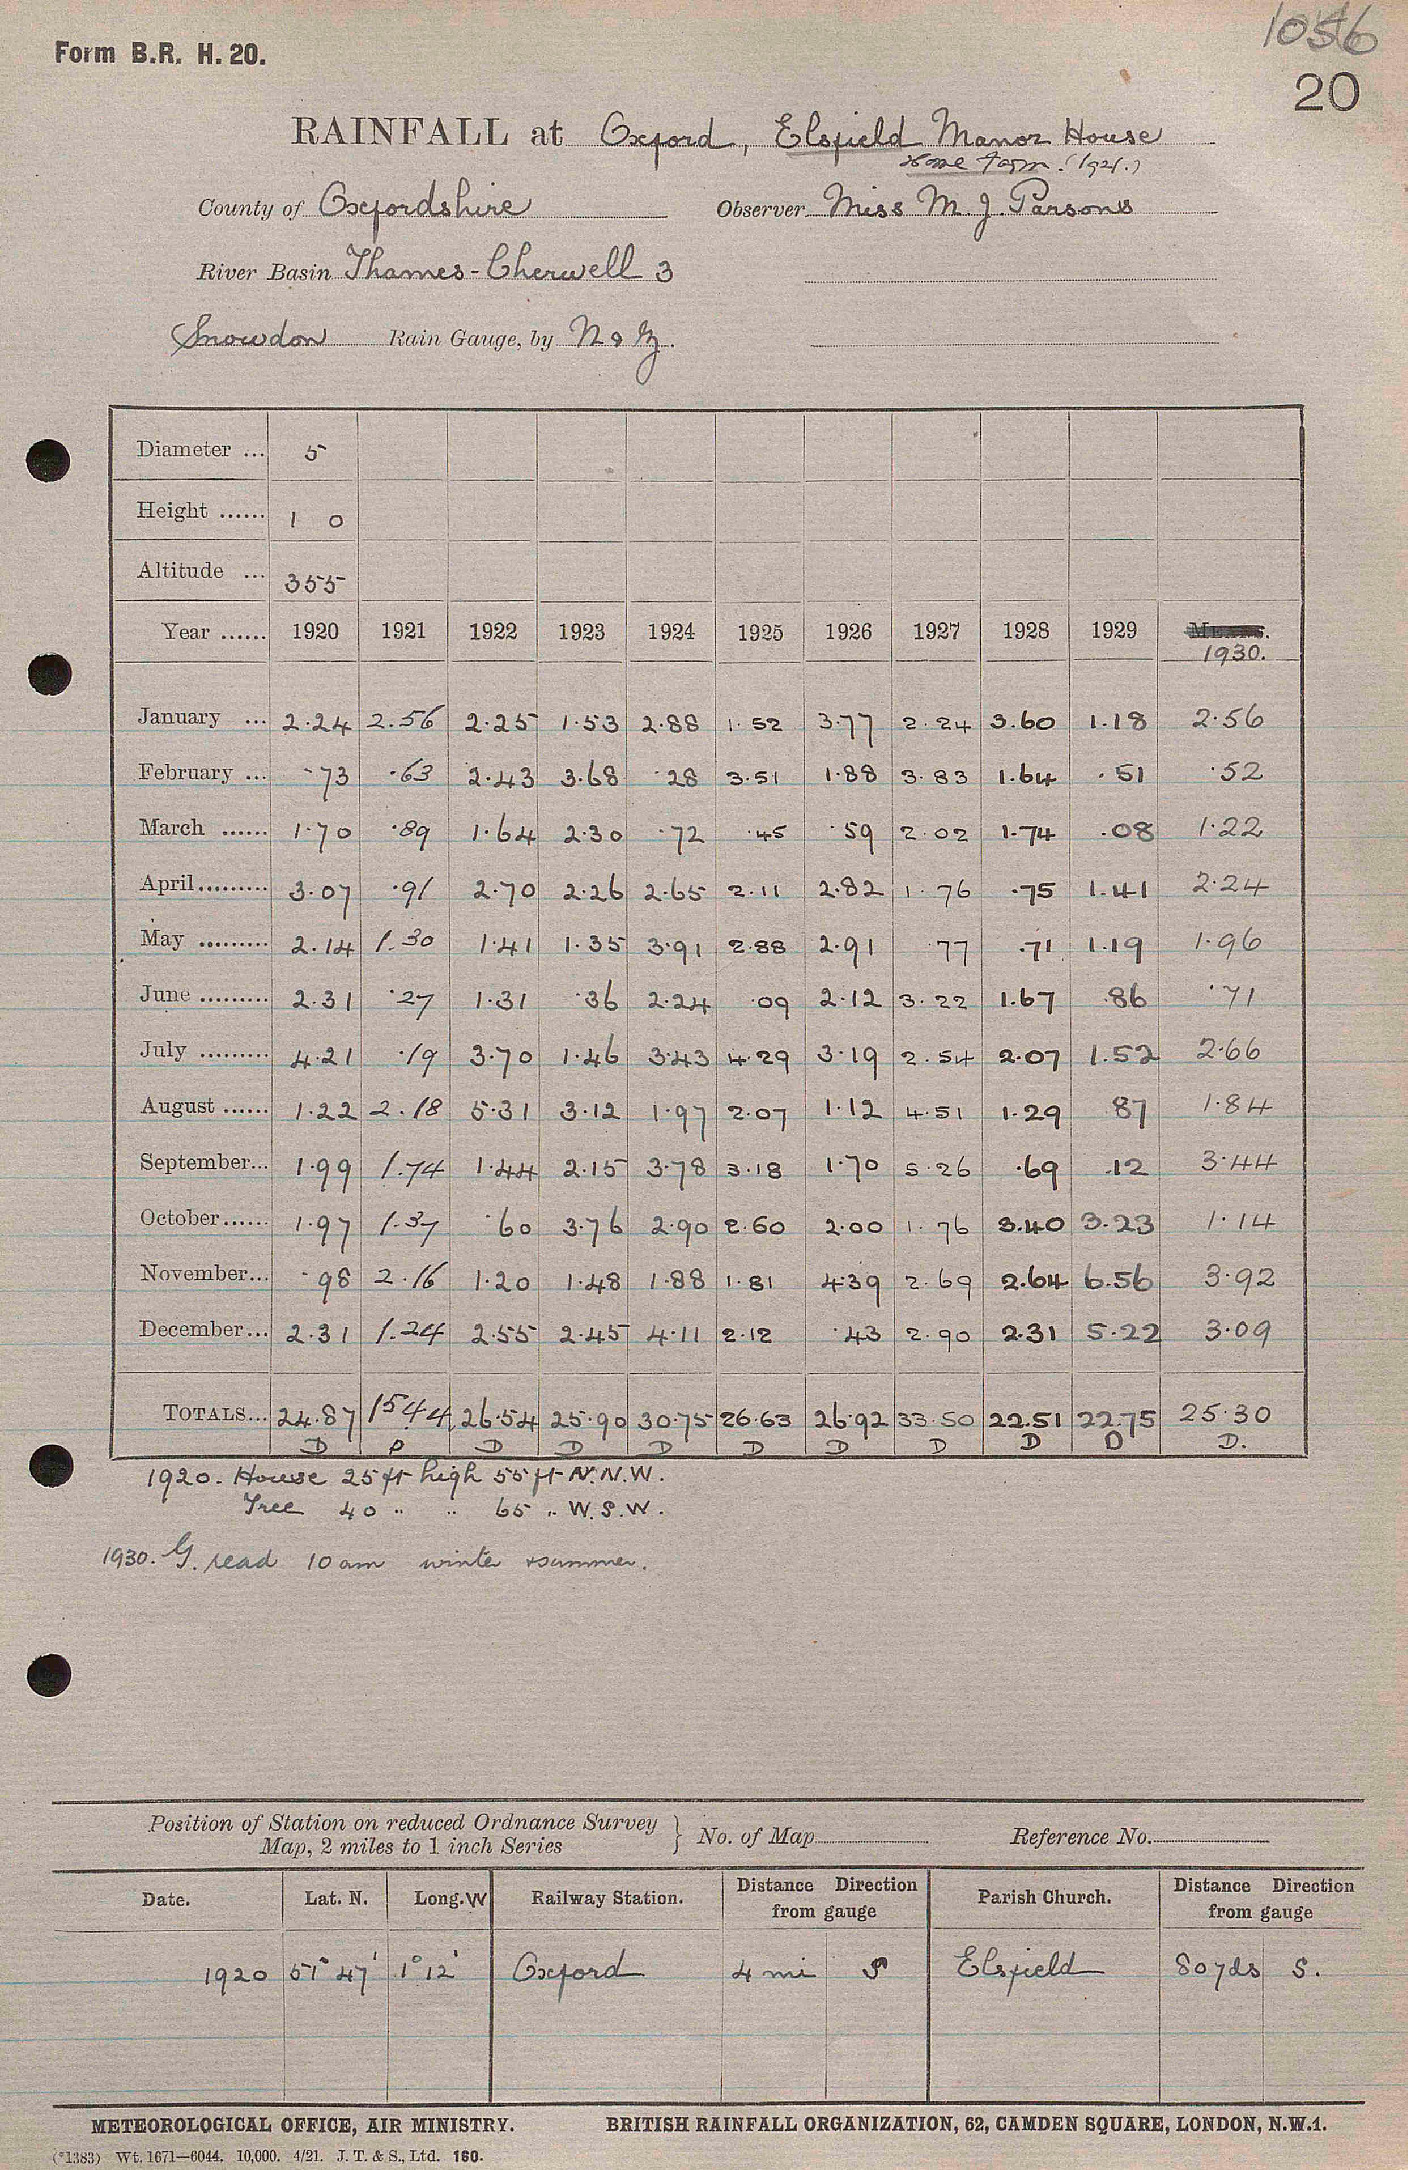 1056
Form B.R. H. 20.
20
RAINFALL at Oxford, Elsfield Manor House
Home Farm. (1921.)
County of Oxfordshire Observer Miss M. J. Parsons
River Basin Thames-Cherwell 3
Snowdon Rain Gauge, by N & Z.
Diameter ... 5
Height ...... 1 0
Altitude ... 355
Year ...... 1920 1921 1922 1923 1924 1925 1926 1927 1928 1929 Means.
1930.
January ... 2.24 2.56 2.25 1.53 2.88 1.52 3.77 2.24 3.60 1.18 2.56
February ... .73 .63 2.43 3.68 .28 3.51 1.88 3.83 1.64 .51 .52
March ...... 1.70 .89 1.64 2.30 .72 .45 .59 2.02 1.74 .08 1.22
April......... 3.07 .91 2.70 2.26 2.65 2.11 2.82 1.76 .75 1.41 2.24
May ......... 2.14 1.30 1.41 1.35 3.91 2.88 2.91 .77 .71 1.19 1.96
June ......... 2.31 .27 1.31 .36 2.24 .09 2.12 3.22 1.67 .86 .71
July ......... 4.21 .19 3.70 1.46 3.43 4.29 3.19 2.54 2.07 1.52 2.66
August ...... 1.22 2.18 5.31 3.12 1.97 2.07 1.12 4.51 1.29 .87 1.84
September... 1.99 1.74 1.44 2.15 3.78 3.18 1.70 5.26 .69 .12 3.44
October...... 1.97 1.37 .60 3.76 2.90 2.60 2.00 1.76 3.40 3.23 1.14
November... .98 2.16 1.20 1.48 1.88 1.81 4.39 2.69 2.64 6.56 3.92
December... 2.31 1.24 2.55 2.45 4.11 2.12 .43 2.90 2.31 5.22 3.09
TOTALS... 24.87 15.44 26.54 25.90 30.75 26.63 26.92 33.50 22.51 22.75 25.30
D P D D D D D D D D D.
1920. House 25 ft high 55 ft N.N.W.
Tree 40 " " 65 " W.S.W.
1930. G. read 10 am winter & summer.
Position of Station on reduced Ordnance Survey
Map, 2 miles to 1 inch Series } No. of Map Reference No.
Date. Lat. N. Long. W Railway Station. Distance Direction from gauge Parish Church. Distance Direction from gauge
1920 51° 47' 1° 12' Oxford 4 mi S Elsfield 80 yds S.
METEOROLOGICAL OFFICE, AIR MINISTRY. BRITISH RAINFALL ORGANIZATION, 62, CAMDEN SQUARE, LONDON, N.W.1.
(*1383) Wt. 1671—6044. 10,000. 4/21. J. T. & S., Ltd. 160.